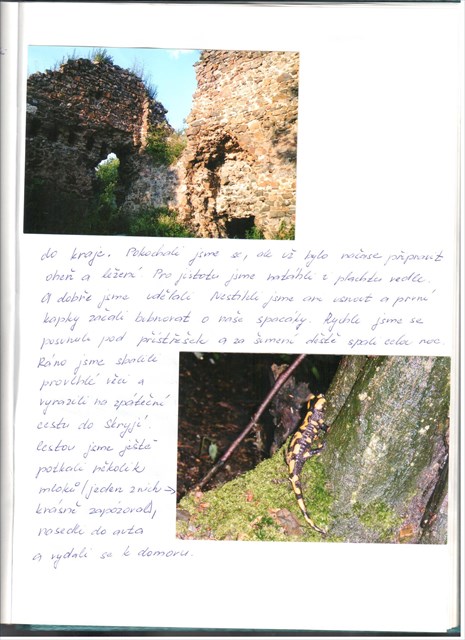 do kraje. Pokochali jsme se, ale už bylo načase připravit
oheň a ležení. Pro jistotu jsme natáhli i plachtu vedle.
A dobře jsme udělali. Nestihli jsme ani usnout a první
kapky začali bubnovat o naše spacáky. Rychle jsme se
posunuli pod přístřešek a za šumění deště spali celou noc.
Ráno jsme sbalili
provlhlé věci a
vyrazili na zpáteční
cestu do Skryjí.
Cestou jsme ještě
potkali několik
mloků/jeden z nich →
krásně zapózoval/,
nasedli do auta
a vydali se k domovu.